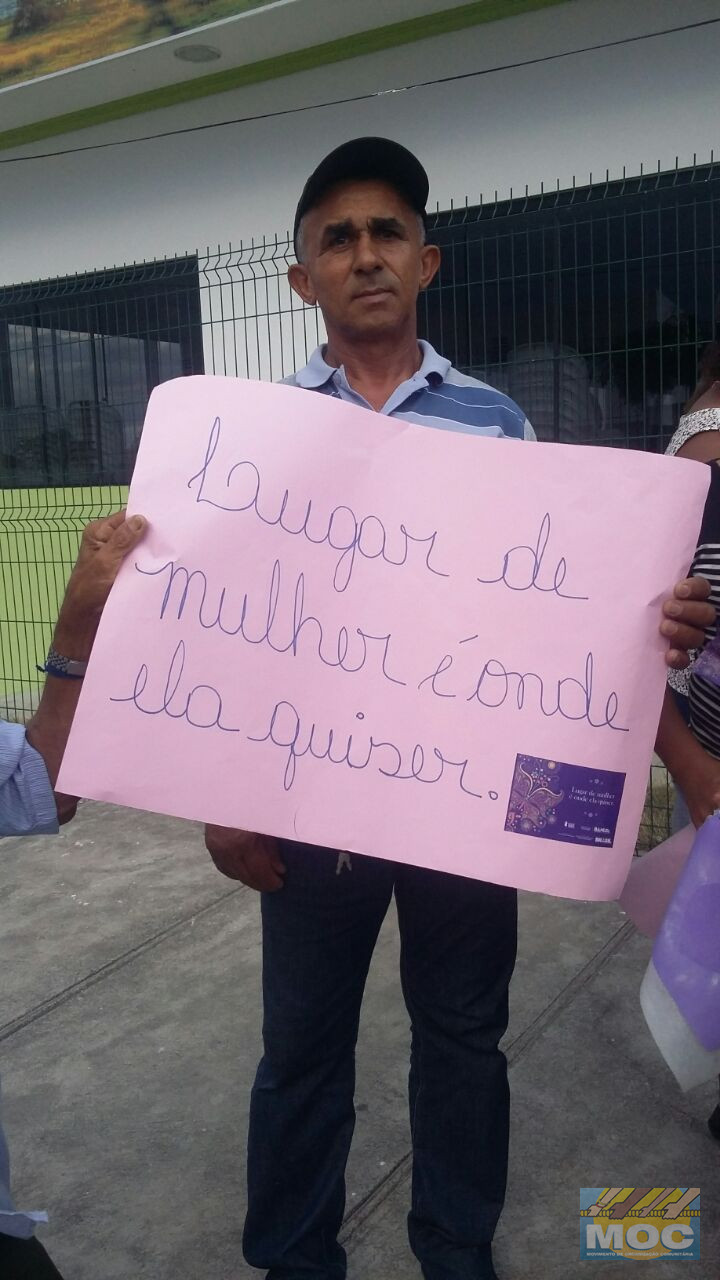 Laugar de
mulher é onde
ela quiser.
Lugar de mulher
é onde ela quiser.
MOC
MOVIMENTO DE ORGANIZAÇÃO COMUNITÁRIA